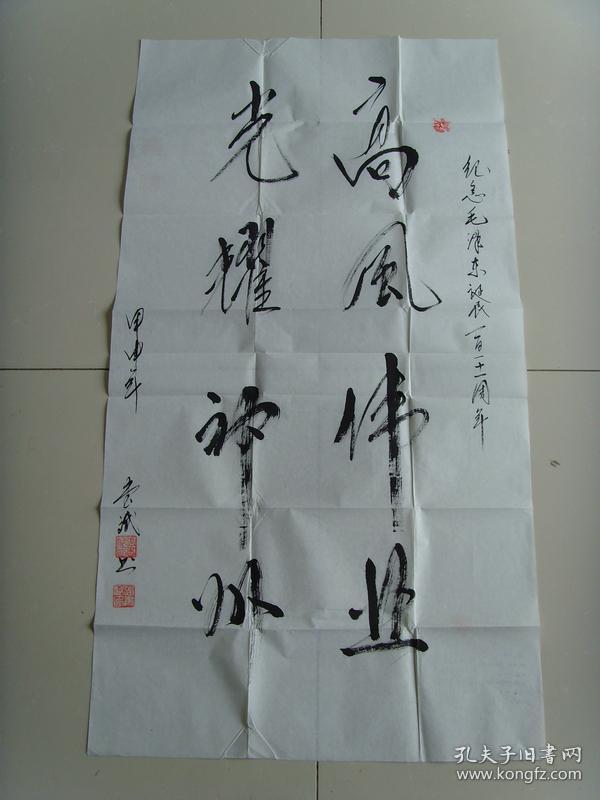 纪念毛泽东诞辰一百一十一周年
高风伟业
光耀神州
甲申年
书
孔夫子旧书网
www.kongfz.com